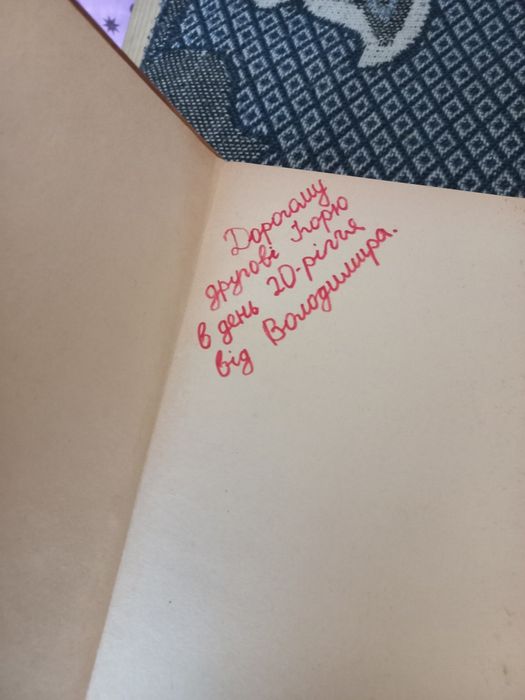 Дорогому
другові Ігорю
в день 20-річчя
від Володимира.